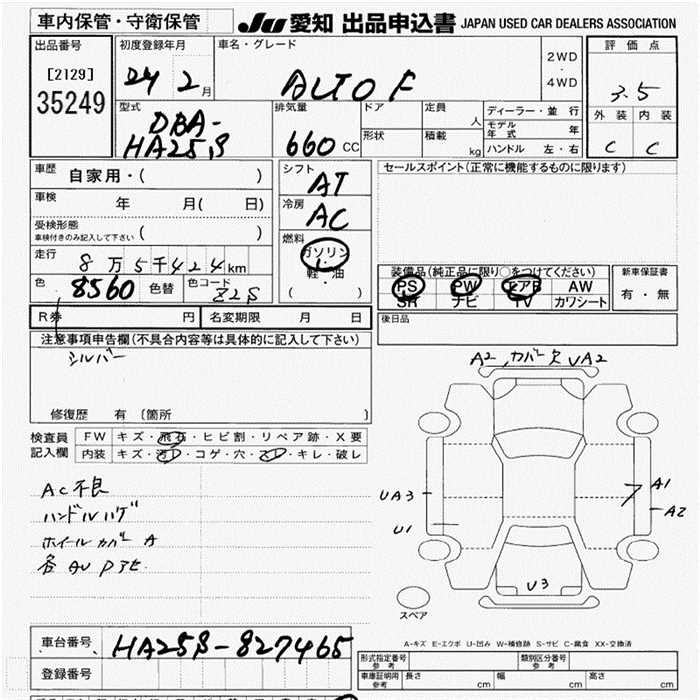 車内保管・守衛保管
JU 愛知 出品申込書 JAPAN USED CAR DEALERS ASSOCIATION
出品番号
[2129]
35249
初度登録年月
24 2月
車名・グレード
ALTO F
2WD
・
4WD
評価点
3.5
外装 内装
C C
型式
DBA-
HA25S
排気量
660 CC
ドア
形状
定員 人
積載 kg
ディーラー・並行
モデル年式 年
ハンドル 左・右
車歴 自家用・( )
車検 年 月( 日)
受検形態
車検付きのみ記入して下さい ( )
走行 8万5千424km
色 8560 色替 色コード Z2S
シフト
AT
冷房
AC
燃料
ガソリン
軽・油
( )
セールスポイント(正常に機能するものに限ります)
装備品(純正品に限り○をつけてください)
PS PW エアB AW
SR ナビ TV カワシート
新車保証書
有・無
後日品
R券 円 名変期限 月 日
注意事項申告欄(不具合内容等は具体的に記入して下さい)
シルバー
修復歴 有 〔箇所 〕
検査員
記入欄
FW キズ・飛石・ヒビ割・リペア跡・X要
内装 キズ・汚レ・コゲ・穴・スレ・キレ・破レ
AC不良
ハンドルハゲ
ホイールカバー A
各AU Pアビ
A2 カバー欠 UA2
UA3
U1
A1
A2
U3
スペア
A-キズ E-エクボ U-凹み W-補修跡 S-サビ C-腐食 XX-交換済
車台番号 HA25S-827465
登録番号
形式指定番号
参考
類別区分番号
参考
車庫証明用
参考
長さ cm 幅 cm 高さ cm